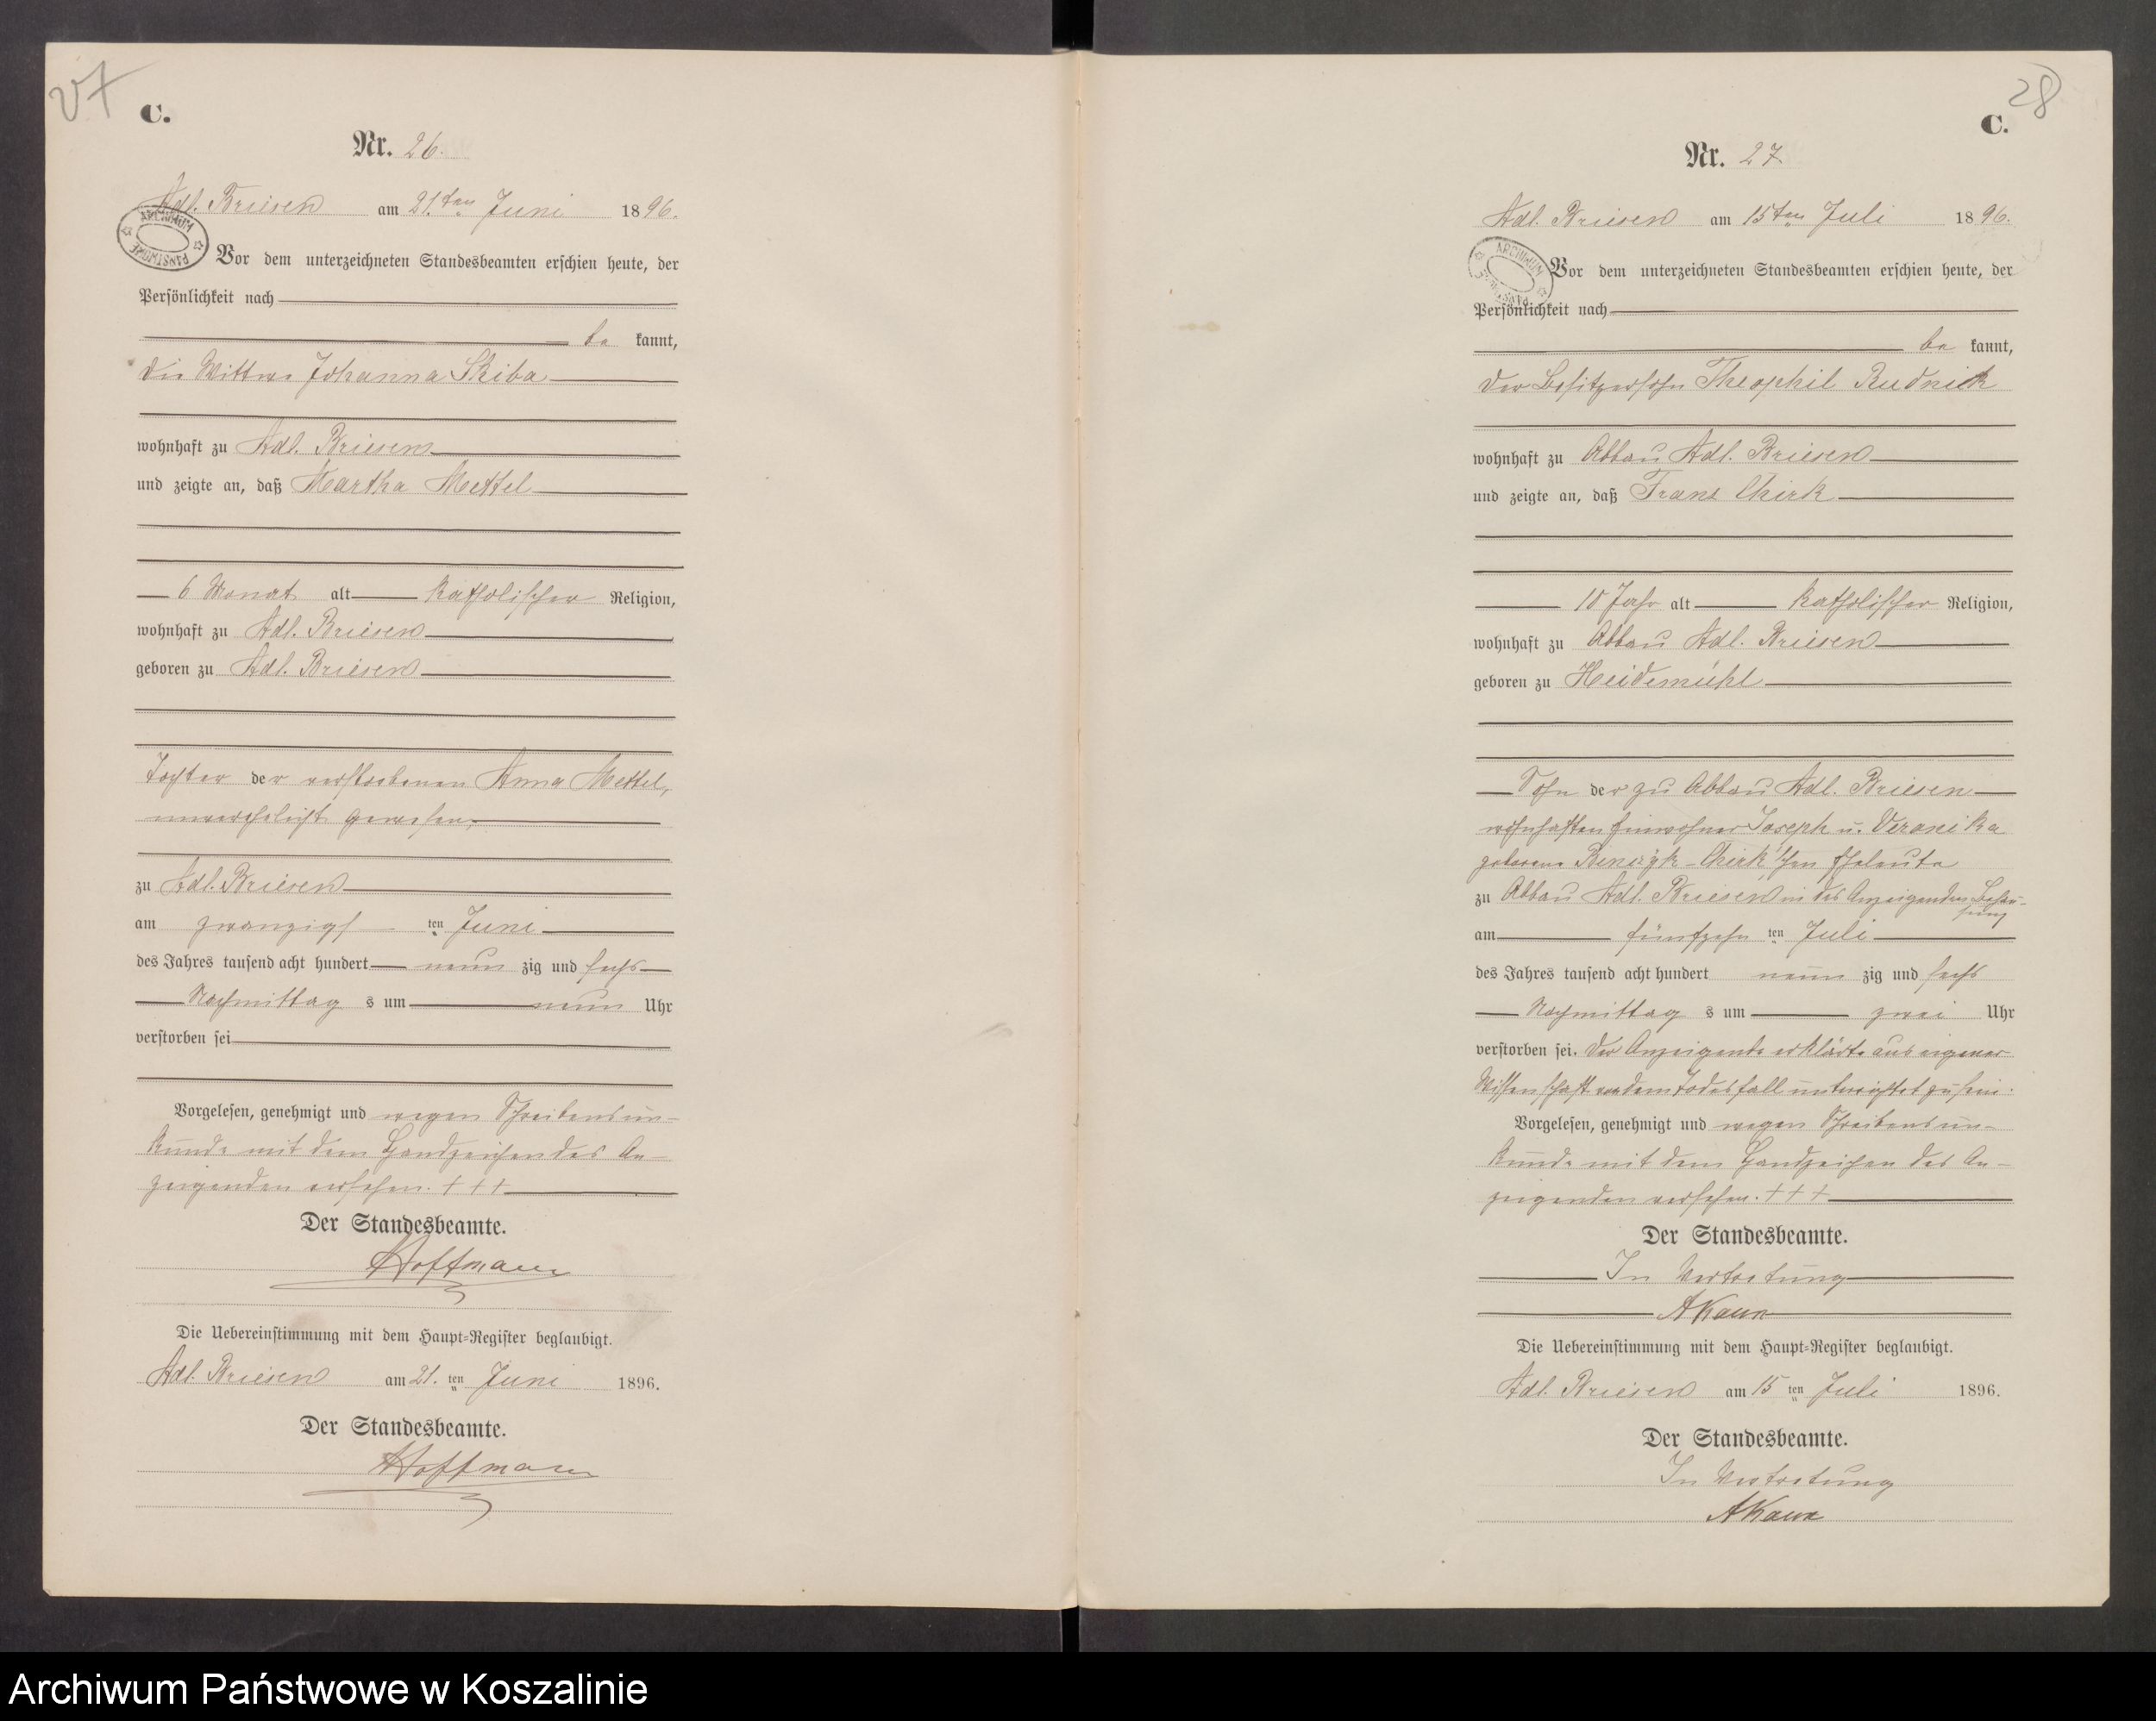 27
C.
Nr. 26.
Adl. Briesen am 21.ten Juni 1896.
ARCHIWUM PAŃSTWOWE
Vor dem unterzeichneten Standesbeamten erschien heute, der
Persönlichkeit nach
be kannt,
die Wittwe Johanna Skiba
wohnhaft zu Adl. Briesen
und zeigte an, daß Martha Mettel
6 Monat alt katholischer Religion,
wohnhaft zu Adl. Briesen
geboren zu Adl. Briesen
Tochter der verstorbenen Anna Mettel,
unverehelicht gewesen,
zu Adl. Briesen
am zwanzigs ten Juni
des Jahres tausend acht hundert neun zig und sechs
Nachmittag s um neun Uhr
verstorben sei
Vorgelesen, genehmigt und wegen Schreibensun-
kunde mit dem Handzeichen des An-
zeigenden versehen. +++
Der Standesbeamte.
Hoffmann
Die Uebereinstimmung mit dem Haupt-Register beglaubigt.
Adl. Briesen am 21. ten Juni 1896.
Der Standesbeamte.
Hoffmann
28
C.
Nr. 27
Adl. Briesen am 15ten Juli 1896.
ARCHIWUM PAŃSTWOWE
Vor dem unterzeichneten Standesbeamten erschien heute, der
Persönlichkeit nach
be kannt,
der Besitzersohn Theophil Rudnick
wohnhaft zu Abbau Adl. Briesen
und zeigte an, daß Franz Chirk
10 Jahr alt katholischer Religion,
wohnhaft zu Abbau Adl. Briesen
geboren zu Heidemühl
Sohn der zu Abbau Adl. Briesen
wohnhaften Einwohner Joseph u. Veronika
geborene Chirk'schen Eheleute
zu Abbau Adl. Briesen in des Anzeigenden Behau-
sung
am fünfzehn ten Juli
des Jahres tausend acht hundert neun zig und sechs
Nachmittag s um zwei Uhr
verstorben sei. Der Anzeigende erklärte aus eigener
Wissenschaft von dem Todesfall unterrichtet zu sein.
Vorgelesen, genehmigt und wegen Schreibensun-
kunde mit dem Handzeichen des An-
zeigenden versehen. +++
Der Standesbeamte.
In Vertretung
Die Uebereinstimmung mit dem Haupt-Register beglaubigt.
Adl. Briesen am 15 ten Juli 1896.
Der Standesbeamte.
In Vertretung
Archiwum Państwowe w Koszalinie